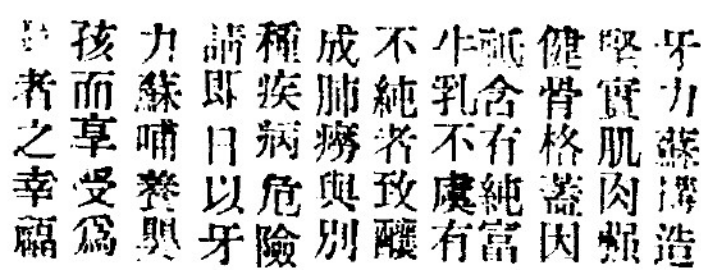 牙力蘇造
堅實肌肉強
健骨格蓋因
祇含有純富
牛乳不虞有
不純者致釀
成肺癆與別
種疾病危險
請即日以牙
力蘇哺養
孩而享受爲
者之幸福